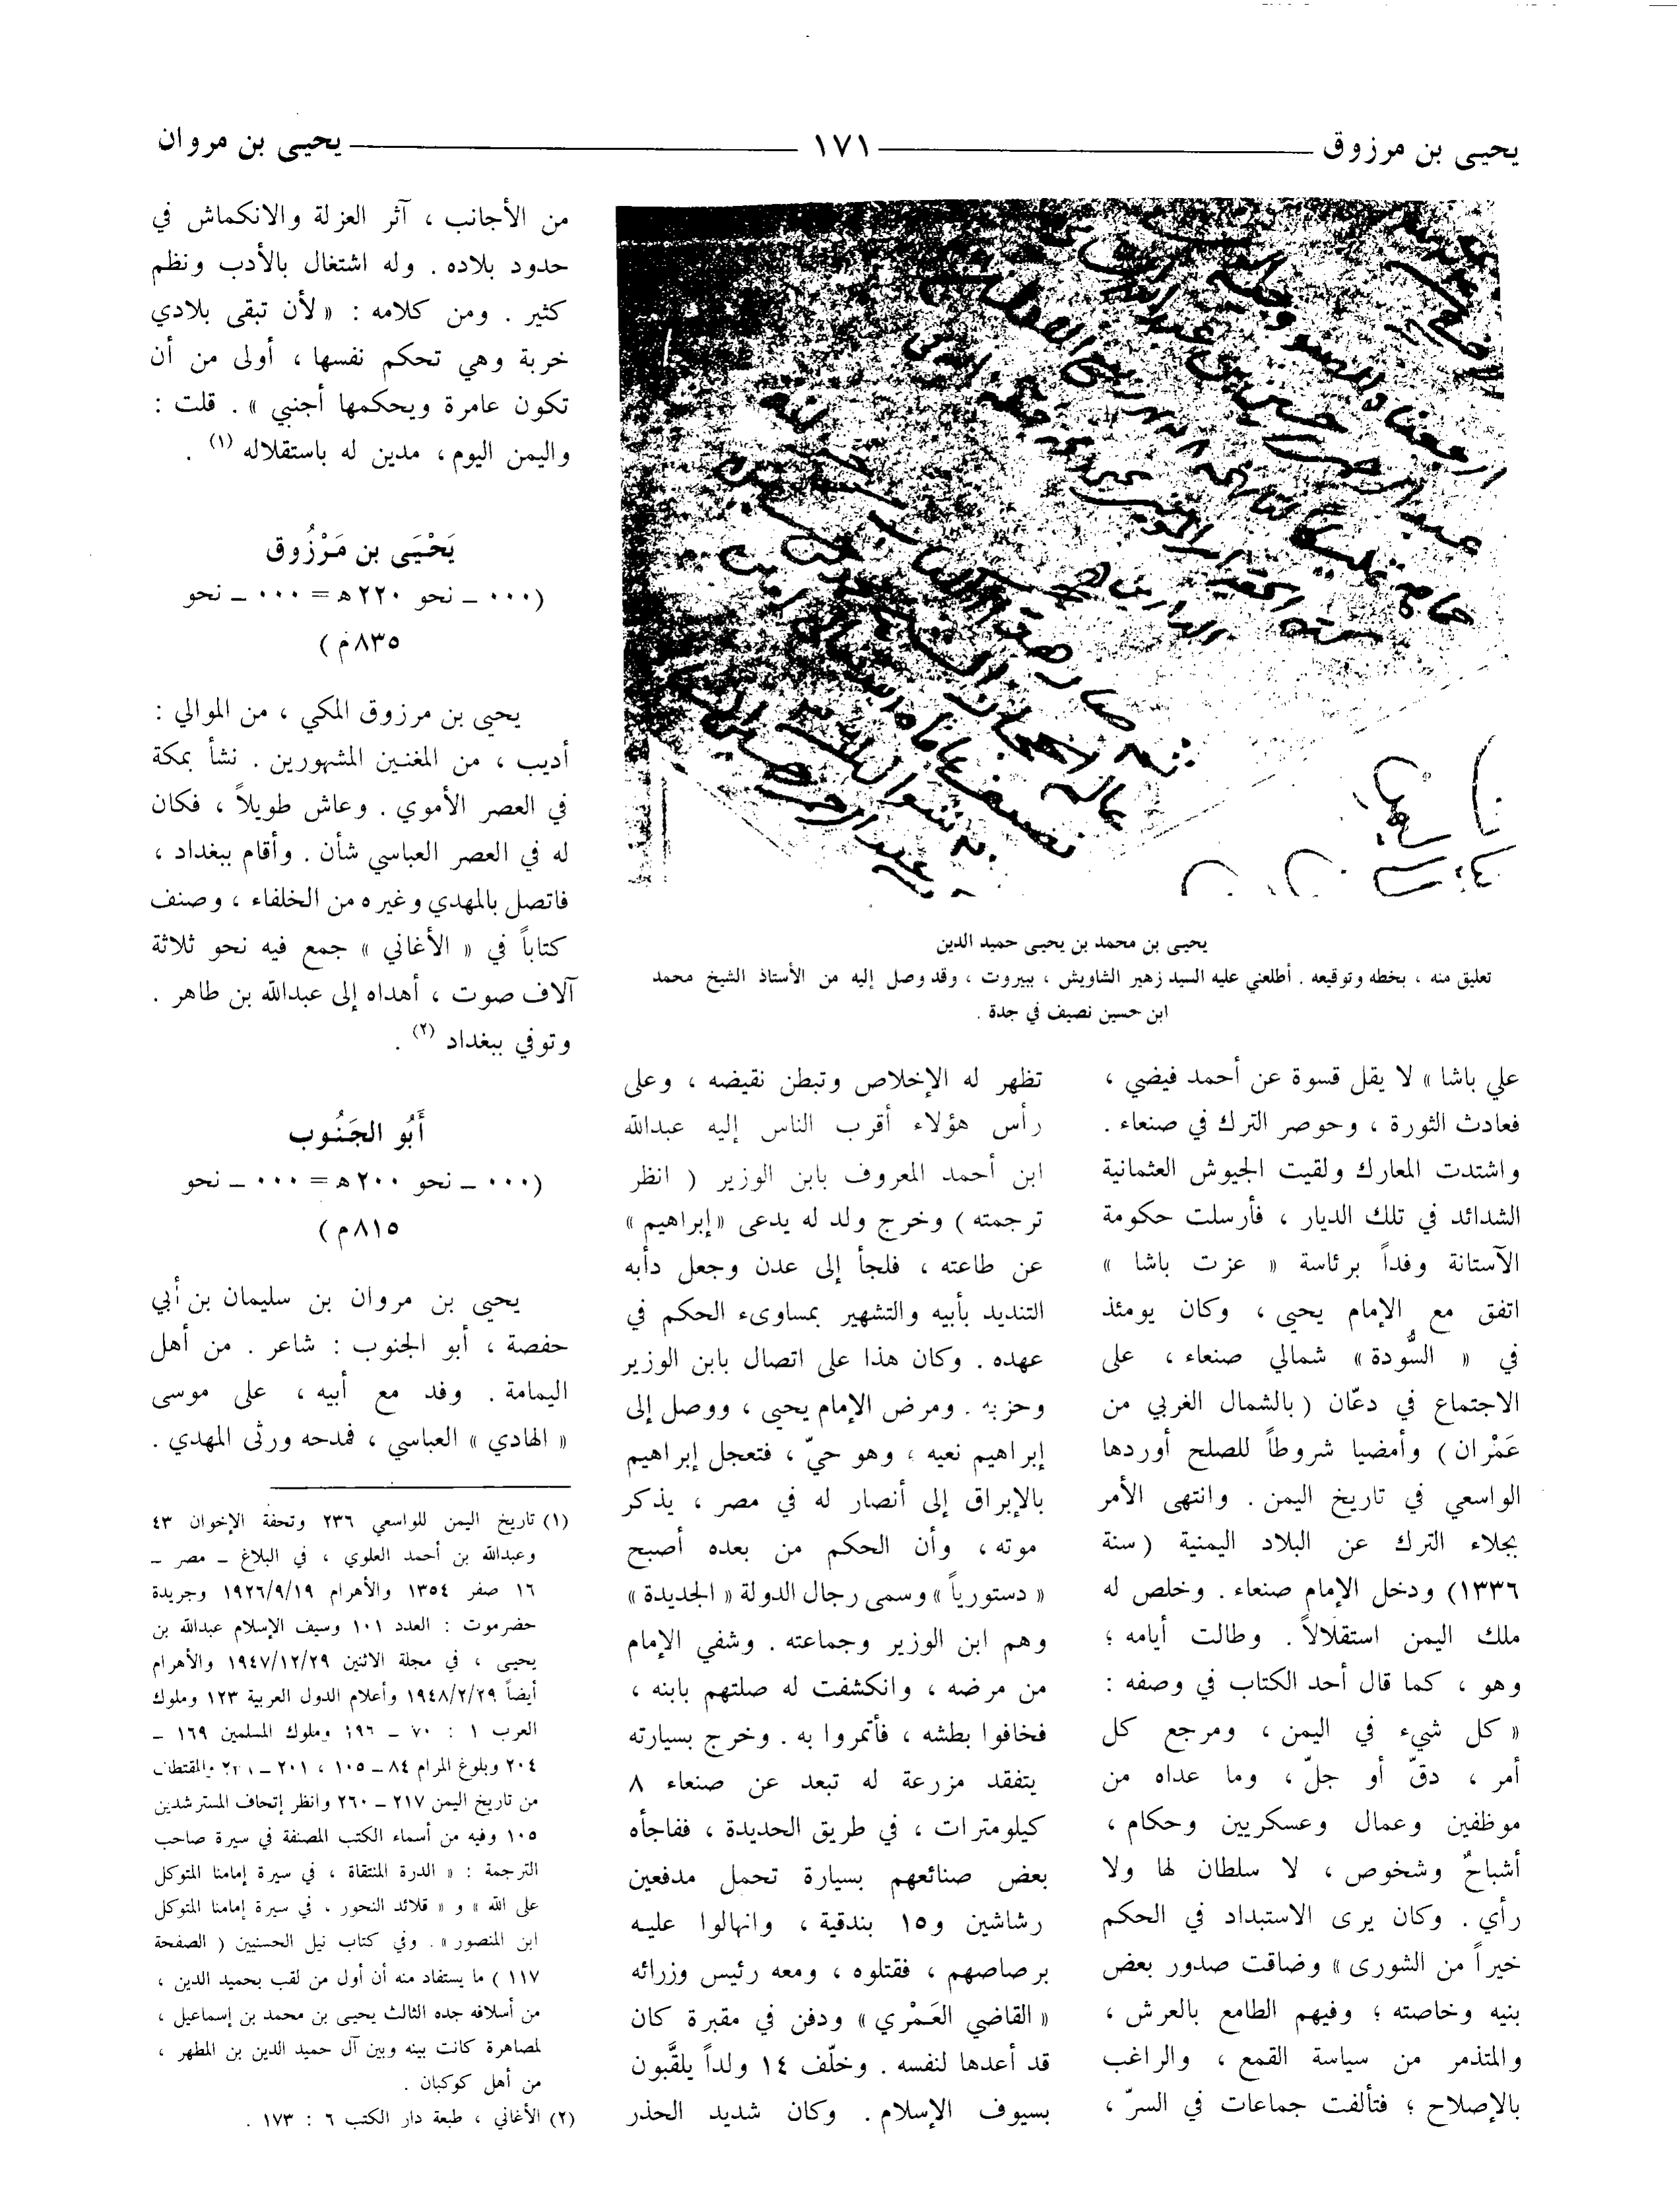 يحيى بن مرزوق ١٧١ يحيى بن مروان
يحيى بن محمد بن يحيى حميد الدين
تعليق منه ، بخطه وتوقيعه . أطلعني عليه السيد زهير الشاويش ، ببيروت ، وقد وصل إليه من الأستاذ الشيخ محمد
ابن حسين نصيف في جدة .
علي باشا » لا يقل قسوة عن أحمد فيضي ،
فعادث الثورة ، وحوصر الترك في صنعاء .
واشتدت المعارك ولقيت الجيوش العثمانية
الشدائد في تلك الديار ، فأرسلت حكومة
الآستانة وفداً برئاسة « عزت باشا »
اتفق مع الإمام يحيى ، وكان يومئذ
في « السُّودة » شمالي صنعاء ، على
الاجتماع في دعّان ( بالشمال الغربي من
عَمْران ) وأمضيا شروطاً للصلح أوردها
الواسعي في تاريخ اليمن . وانتهى الأمر
بجلاء الترك عن البلاد اليمنية ( سنة
١٣٣٦) ودخل الإمام صنعاء . وخلص له
ملك اليمن استقلالاً . وطالت أيامه ؛
وهو ، كما قال أحد الكتاب في وصفه :
« كل شيء في اليمن ، ومرجع كل
أمر ، دقّ أو جلّ ، وما عداه من
موظفين وعمال وعسكريين وحكام ،
أشباحٌ وشخوص ، لا سلطان لها ولا
رأي . وكان يرى الاستبداد في الحكم
خيراً من الشورى » وضاقت صدور بعض
بنيه وخاصته ؛ وفيهم الطامع بالعرش ،
والمتذمر من سياسة القمع ، والراغب
بالإصلاح ؛ فتألفت جماعات في السرّ ،
تظهر له الإخلاص وتبطن نقيضه ، وعلى
رأس هؤلاء أقرب الناس إليه عبدالله
ابن أحمد المعروف بابن الوزير ( انظر
ترجمته ) وخرج ولد له يدعى « إبراهيم »
عن طاعته ، فلجأ إلى عدن وجعل دأبه
التنديد بأبيه والتشهير بمساوىء الحكم في
عهده . وكان هذا على اتصال بابن الوزير
وحزبه . ومرض الإمام يحيى ، ووصل إلى
إبراهيم نعيه ، وهو حيّ ، فتعجل إبراهيم
بالإبراق إلى أنصار له في مصر ، يذكر
موته ، وأن الحكم من بعده أصبح
« دستورياً » وسمى رجال الدولة « الجديدة »
وهم ابن الوزير وجماعته . وشفي الإمام
من مرضه ، وانكشفت له صلتهم بابنه ،
فخافوا بطشه ، فأتمروا به . وخرج بسيارته
يتفقد مزرعة له تبعد عن صنعاء ٨
كيلومترات ، في طريق الحديدة ، ففاجأه
بعض صنائعهم بسيارة تحمل مدفعين
رشاشين و١٥ بندقية ، وانهالوا عليه
برصاصهم ، فقتلوه ، ومعه رئيس وزرائه
« القاضي العَمْري » ودفن في مقبرة كان
قد أعدها لنفسه . وخلّف ١٤ ولداً يلقَّبون
بسيوف الإسلام . وكان شديد الحذر
من الأجانب ، آثر العزلة والانكماش في
حدود بلاده . وله اشتغال بالأدب ونظم
كثير . ومن كلامه : « لأن تبقى بلادي
خربة وهي تحكم نفسها ، أولى من أن
تكون عامرة ويحكمها أجنبي » . قلت :
واليمن اليوم ، مدين له باستقلاله (١) .
يَحْيَى بن مَرْزُوق
(٠٠٠ ــ نحو ٢٢٠ه = ٠٠٠ ــ نحو
٨٣٥م )
يحيى بن مرزوق المكي ، من الموالي :
أديب ، من المغنين المشهورين . نشأ بمكة
في العصر الأموي . وعاش طويلاً ، فكان
له في العصر العباسي شأن . وأقام ببغداد ،
فاتصل بالمهدي وغيره من الخلفاء ، وصنف
كتاباً في « الأغاني » جمع فيه نحو ثلاثة
آلاف صوت ، أهداه إلى عبدالله بن طاهر .
وتوفي ببغداد (٢) .
أَبُو الجَنُوب
(٠٠٠ ــ نحو ٢٠٠ه = ٠٠٠ ــ نحو
٨١٥م )
يحيى بن مروان بن سليمان بن أبي
حفصة ، أبو الجنوب : شاعر . من أهل
اليمامة . وفد مع أبيه ، على موسى
« الهادي » العباسي ، فمدحه ورثى المهدي .
(١) تاريخ اليمن للواسعي ٢٣٦ وتحفة الإخوان ٤٣
وعبدالله بن أحمد العلوي ، في البلاغ ــ مصر ــ
١٦ صفر ١٣٥٤ والأهرام ١٩٢٦/٩/١٩ وجريدة
حضرموت : العدد ١٠١ وسيف الإسلام عبدالله بن
يحيى ، في مجلة الاثنين ١٩٤٧/١٢/٢٩ والأهرام
أيضاً ١٩٤٨/٢/٢٩ وأعلام الدول العربية ١٢٣ وملوك
العرب ١ : ٧٠ ــ ١٩٦ وملوك المسلمين ١٦٩ ــ
٢٠٤ وبلوغ المرام ٨٤ ــ ١٠٥ ، ٢٠١ ــ والمقتطف
من تاريخ اليمن ٢١٧ ــ ٢٦٠ وانظر إتحاف المسترشدين
١٠٥ وفيه من أسماء الكتب المصنفة في سيرة صاحب
الترجمة : « الدرة المنتقاة ، في سيرة إمامنا المتوكل
على الله » و « قلائد النحور ، في سيرة إمامنا المتوكل
ابن المنصور » . وفي كتاب نيل الحسنيين ( الصفحة
١١٧ ) ما يستفاد منه أن أول من لقب بحميد الدين ،
من أسلافه جده الثالث يحيى بن محمد بن إسماعيل ،
لمصاهرة كانت بينه وبين آل حميد الدين بن المطهر ،
من أهل كوكبان .
(٢) الأغاني ، طبعة دار الكتب ٦ : ١٧٣ .